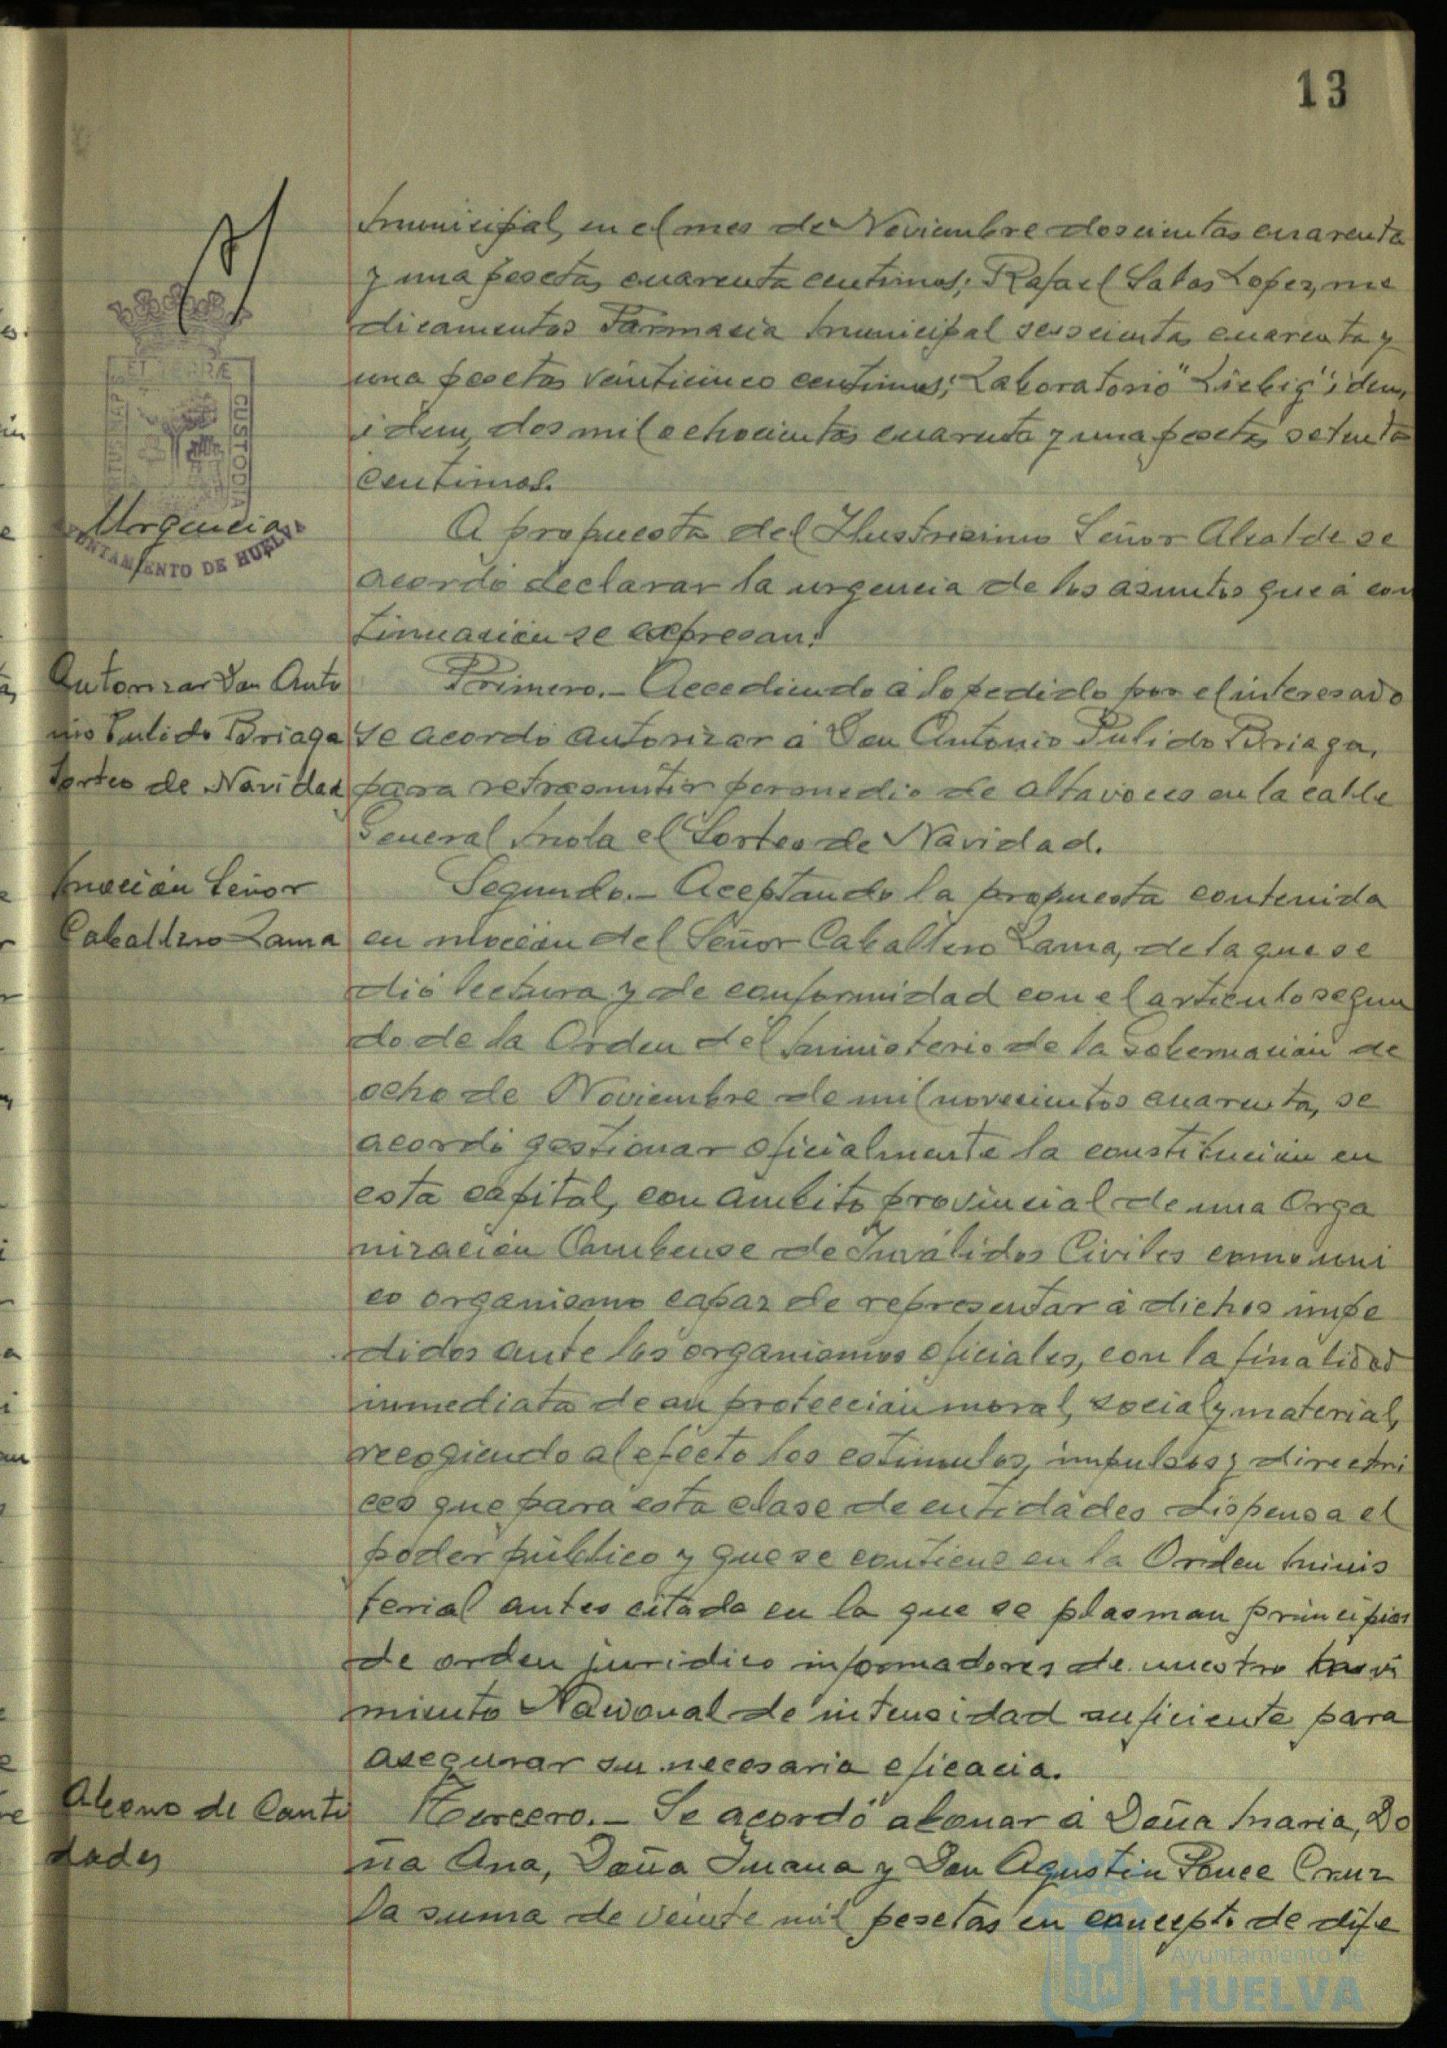 13
Municipal, en el mes de Noviembre doscientas cuarenta
y una pesetas cuarenta centimos; Rafael Salas Lopez, me
dicamentos Farmacia Municipal seiscientas cuarenta y
una pesetas veinticinco centimos; Laboratorio "Liebig" idem,
idem, dos mil ochocientas cuarenta y una pesetas setenta
centimos.
Urgencia
PORTUS MARIS ET TERRÆ CUSTODIA
AYUNTAMIENTO DE HUELVA
A propuesta del Ilustrisimo Señor Alcalde se
acordó declarar la urgencia de los asuntos que á con
tinuación se expresan:
Autorizar Don Anto
nio Pulido Briaga
Sorteo de Navidad
Primero.- Accediendo á lo pedido por el interesado
se acordó autorizar á Don Antonio Pulido Briaga,
para retrasmitir por medio de altavoces en la calle
General Mola el Sorteo de Navidad.
Moción Señor
Caballero Lama
Segundo.- Aceptando la propuesta contenida
en moción del Señor Caballero Lama, de la que se
dió lectura y de conformidad con el articulo segun
do de la Orden del Ministerio de la Gobernación de
ocho de Noviembre de mil novecientos cuarenta, se
acordó gestionar oficialmente la constitución en
esta capital, con ámbito provincial de una Orga
nización Onubense de Inválidos Civiles como uni
co organismo capaz de representar á dichos impe
didos ante los organismos oficiales, con la finalidad
inmediata de su protección moral, social y material,
recogiendo al efecto los estimulos, impulsos y directri
ces que para esta clase de entidades dispensa el
poder público y que se contiene en la Orden Minis
terial antes citada en la que se plasman principios
de orden juridico informadores de nuestro Movi
miento Nacional de intensidad suficiente para
asegurar su necesaria eficacia.
Abono de Canti
dades
Tercero.- Se acordó abonar á Doña Maria, Do
ña Ana, Doña Juana y Don Agustin Ponce Cruz
la suma de veinte mil pesetas en concepto de dife
Ayuntamiento de
HUELVA